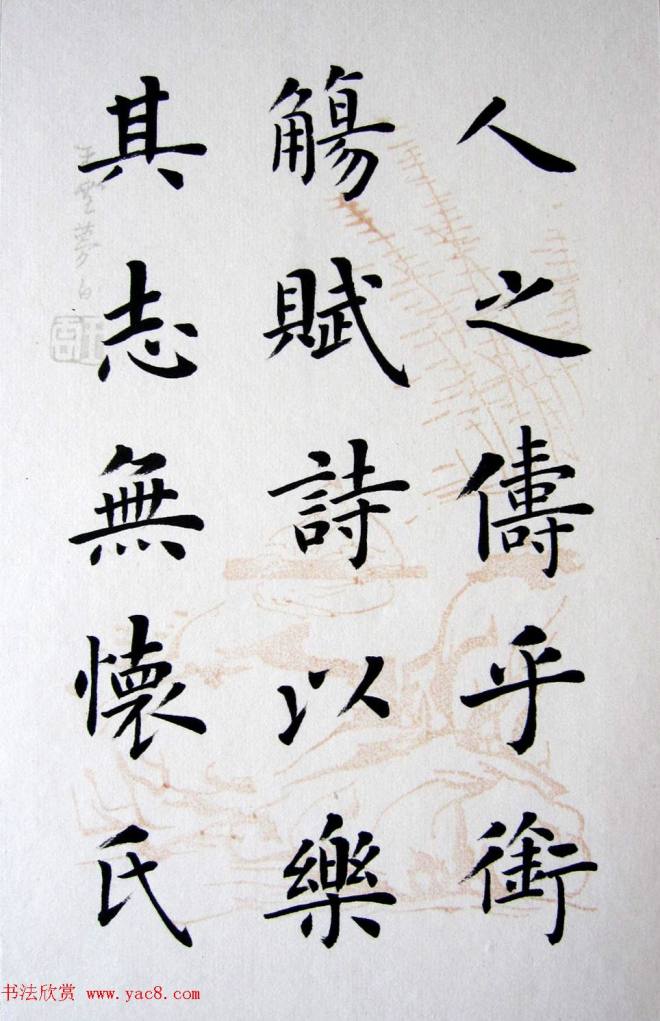 人之儔乎銜
觴賦詩以樂
其志無懷氏
书法欣赏 www.yac8.com